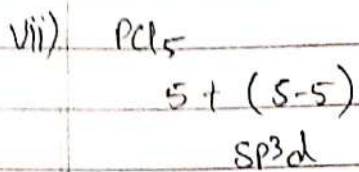 Vii) PCl5
5 + (5-5)
SP³d